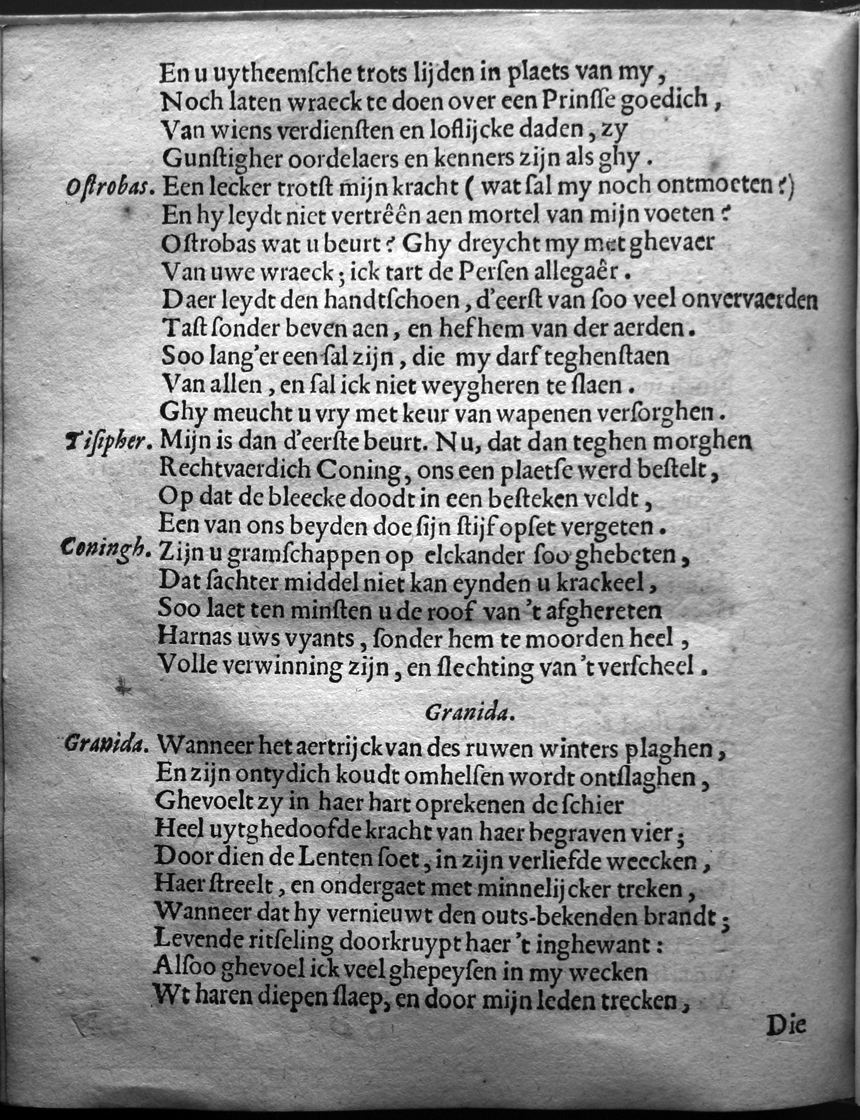 En u uytheemſche trots lijden in plaets van my,
Noch laten wraeck te doen over een Prinſſe goedich,
Van wiens verdienſten en loflijcke daden, zy
Gunſtigher oordelaers en kenners zijn als ghy.
Oſtrobas. Een lecker trotſt mijn kracht ( wat ſal my noch ontmoeten?)
En hy leydt niet vertrêên aen mortel van mijn voeten?
Oſtrobas wat u beurt? Ghy dreycht my met ghevaer
Van uwe wraeck; ick tart de Perſen allegaêr.
Daer leydt den handtſchoen, d'eerſt van ſoo veel onvervaerden
Taſt ſonder beven aen, en hef hem van der aerden.
Soo lang'er een ſal zijn, die my darf teghenſtaen
Van allen, en ſal ick niet weygheren te ſlaen.
Ghy meucht u vry met keur van wapenen verſorghen.
Tiſipher. Mijn is dan d'eerſte beurt. Nu, dat dan teghen morghen
Rechtvaerdich Coning, ons een plaetſe werd beſtelt,
Op dat de bleecke doodt in een beſteken veldt,
Een van ons beyden doe ſijn ſtijf opſet vergeten.
Coningh. Zijn u gramſchappen op elckander ſoo ghebeten,
Dat ſachter middel niet kan eynden u krackeel,
Soo laet ten minſten u de roof van 't afghereten
Harnas uws vyants, ſonder hem te moorden heel,
Volle verwinning zijn, en ſlechting van 't verſcheel.
Granida.
Granida. Wanneer het aertrijck van des ruwen winters plaghen,
En zijn ontydich koudt omhelſen wordt ontſlaghen,
Ghevoelt zy in haer hart oprekenen de ſchier
Heel uytghedoofde kracht van haer begraven vier;
Door dien de Lenten ſoet, in zijn verliefde weecken,
Haer ſtreelt, en ondergaet met minnelijcker treken,
Wanneer dat hy vernieuwt den outs-bekenden brandt;
Levende ritſeling doorkruypt haer 't inghewant:
Alſoo ghevoel ick veel ghepeyſen in my wecken
Wt haren diepen ſlaep, en door mijn leden trecken,
Die